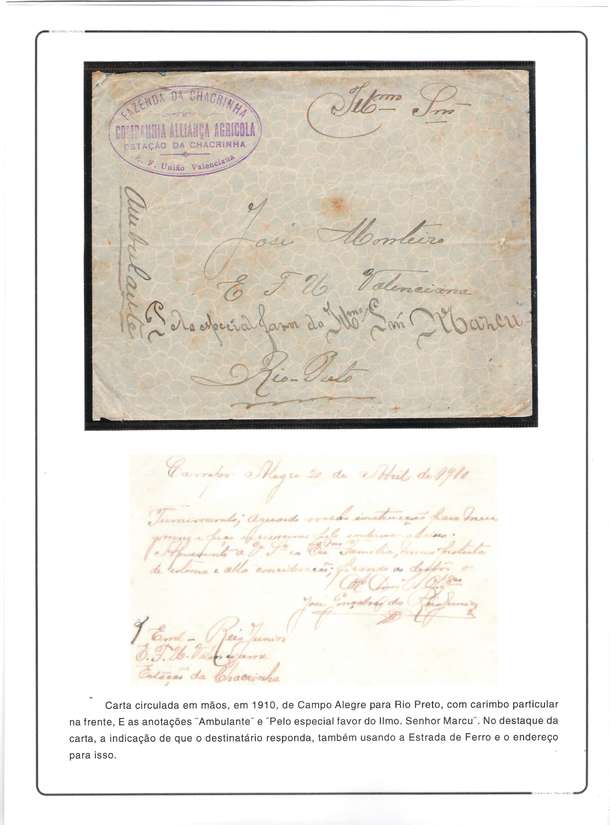 FAZENDA DA CHACRINHA
COMPANHIA ALLIANÇA AGRICOLA
ESTAÇÃO DA CHACRINHA
E. F. União Valenciana
Illmo Snr
Ambulante
José Monteiro
E F U Valenciana
Pelo especial favor do Illmo Snr Marcu
Rio-Preto
Campo Alegre 20 de Abril de 1910
de estima e alta consideração,
José Gonçalves
End - Reis Junior
E. F. U. Valenciana
Estação da Chacrinha
Carta circulada em mãos, em 1910, de Campo Alegre para Rio Preto, com carimbo particular
na frente, E as anotações ¨Ambulante¨ e ¨Pelo especial favor do Ilmo. Senhor Marcu¨. No destaque da
carta, a indicação de que o destinatário responda, também usando a Estrada de Ferro e o endereço
para isso.